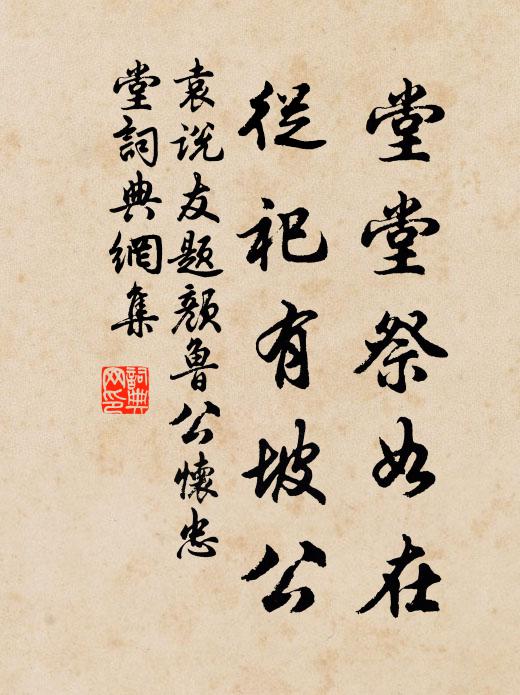 堂堂祭如在
從祀有坡公
袁说友題顏魯公懷忠
堂詞典網集
詞典
网印